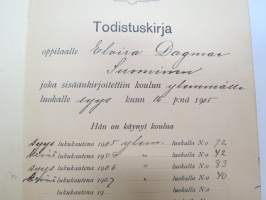 Todistuskirja
oppilaalle Elvira Dagmar
Suominen
joka sisäänkirjoitettiin koulun ylemmälle
luokalle syys kuun 16 p:nä 1905
Hän on käynyt koulua
syys lukukautena 1905 ylem. luokalla N:o 72
kevät lukukautena 1906 " luokalla N:o 42
syys lukukautena 1906 " luokalla N:o 83
kevät lukukautena 1907 " luokalla N:o 40
lukukautena 19 luokalla N:o